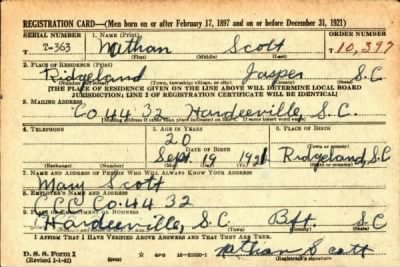 REGISTRATION CARD—(Men born on or after February 17, 1897 and on or before December 31, 1921)
SERIAL NUMBER 1. NAME (Print) ORDER NUMBER
T-363 Nathan Scott 10,397
(First) (Middle) (Last)
2. PLACE OF RESIDENCE (Print)
Ridgeland Jasper S.C
(Number and street) (Town, township, village, or city) (County) (State)
[THE PLACE OF RESIDENCE GIVEN ON THE LINE ABOVE WILL DETERMINE LOCAL BOARD
JURISDICTION; LINE 2 OF REGISTRATION CERTIFICATE WILL BE IDENTICAL]
3. MAILING ADDRESS
Co. 44 32 Hardeeville, S.C.
[Mailing address if other than place indicated on line 2. If same insert word same]
4. TELEPHONE 5. AGE IN YEARS 6. PLACE OF BIRTH
20
DATE OF BIRTH Ridgeland, S.C
Sept. 19 1921
(Exchange) (Number) (Mo.) (Day) (Yr.) (Town or county) (State or country)
7. NAME AND ADDRESS OF PERSON WHO WILL ALWAYS KNOW YOUR ADDRESS
Mary Scott
8. EMPLOYER'S NAME AND ADDRESS
CCC Co. 44 32
9. PLACE OF EMPLOYMENT OR BUSINESS
Hardeeville, S.C. Bft S.C
(Number and street or R. F. D. number) (Town) (County) (State)
I AFFIRM THAT I HAVE VERIFIED ABOVE ANSWERS AND THAT THEY ARE TRUE.
D. S. S. Form 1 GPO Nathan Scott
(Revised 1-1-42) (Registrant's signature)